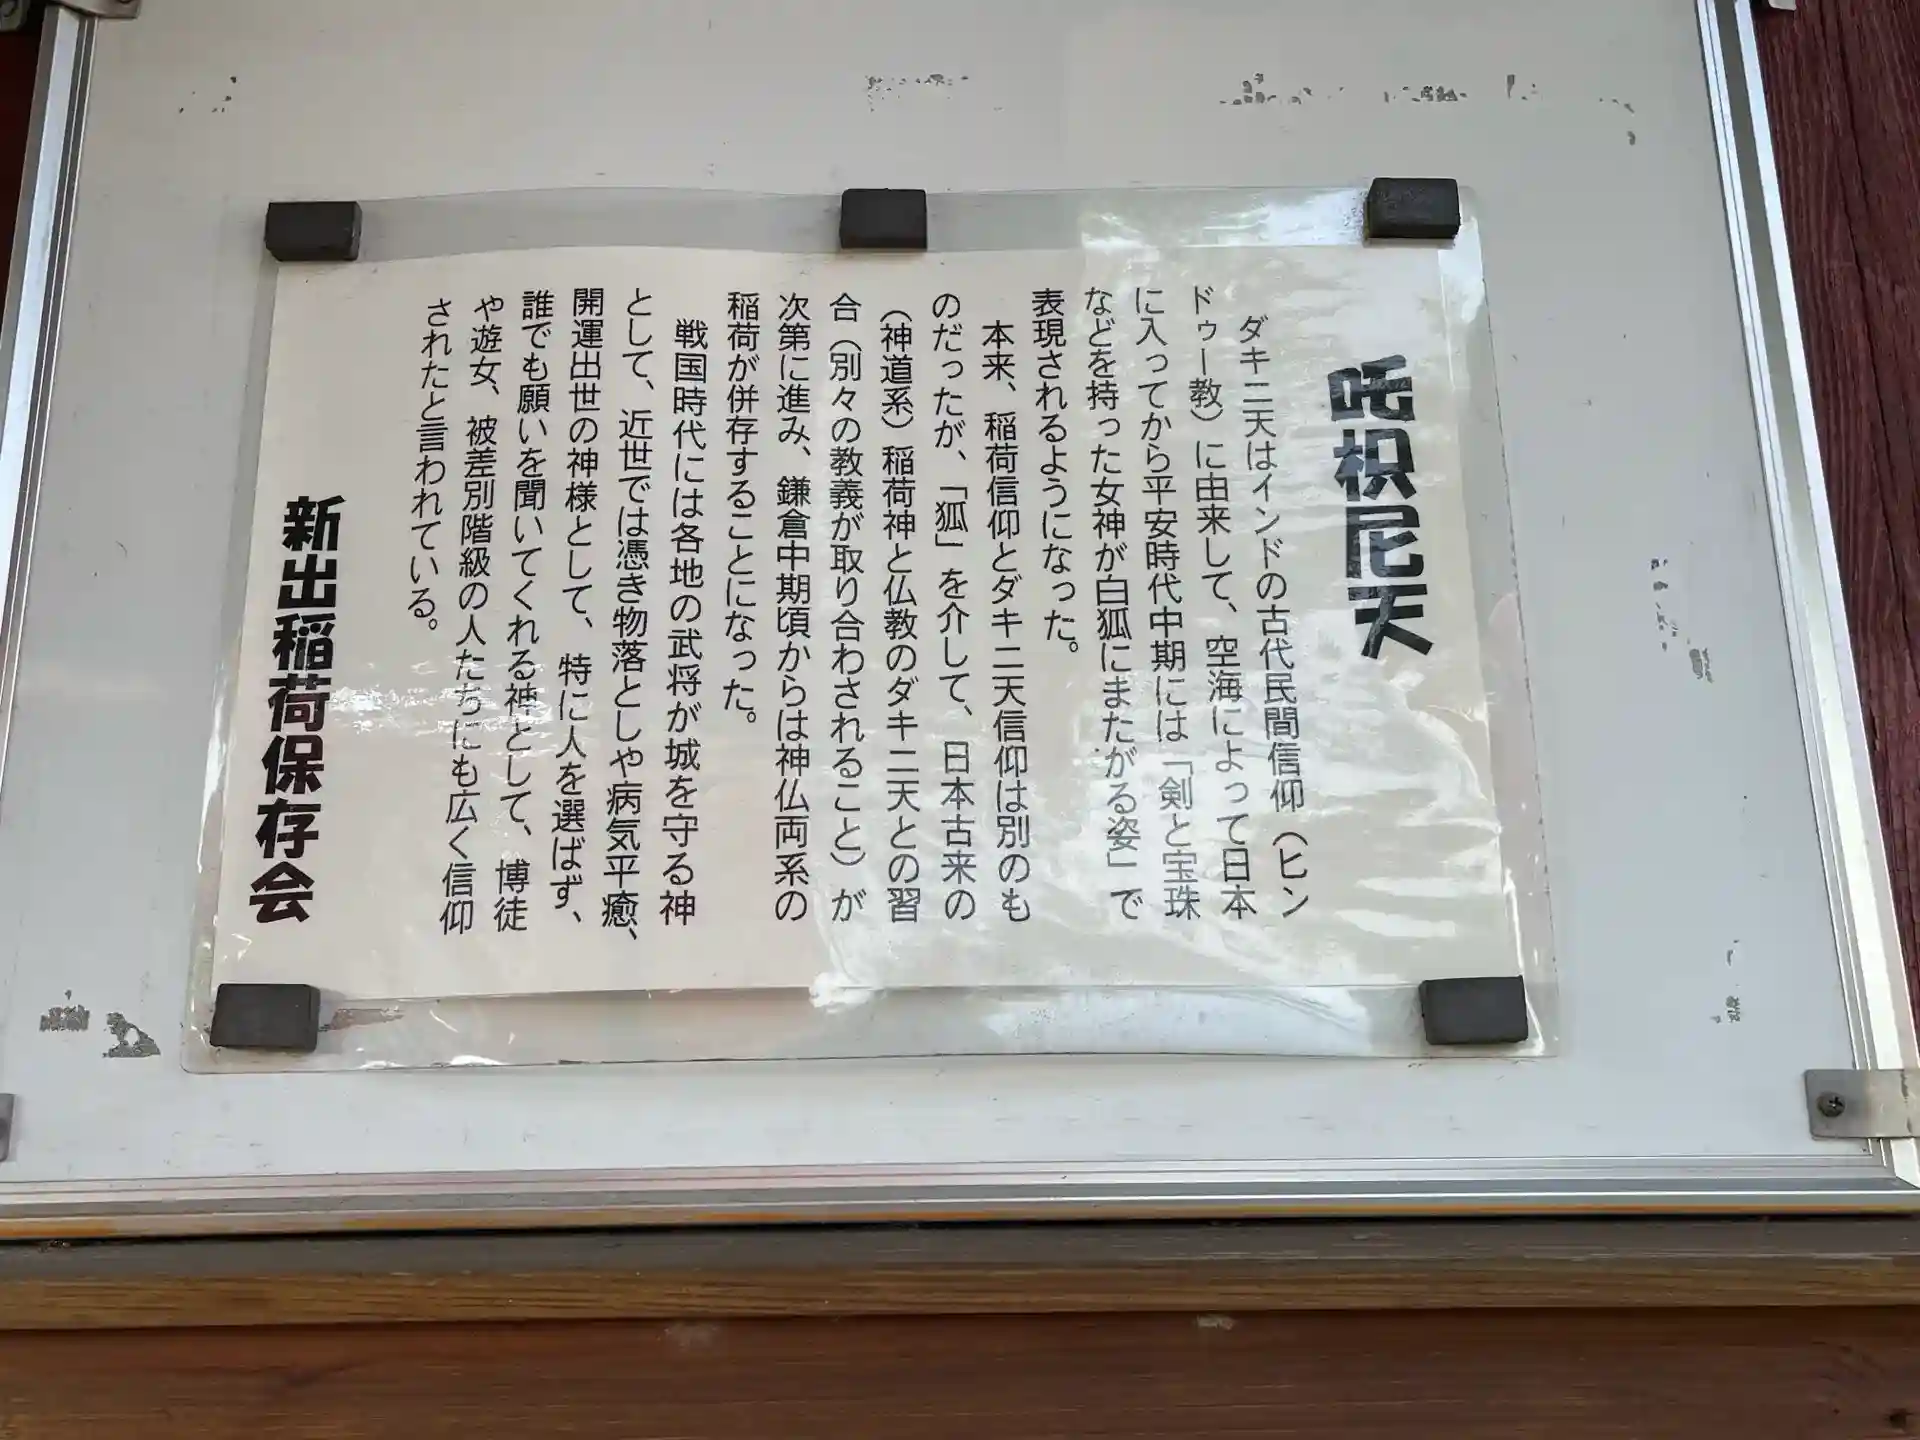 吒枳尼天
ダキニ天はインドの古代民間信仰（ヒン
ドゥー教）に由来して、空海によって日本
に入ってから平安時代中期には「剣と宝珠
などを持った女神が白狐にまたがる姿」で
表現されるようになった。
本来、稲荷信仰とダキニ天信仰は別のも
のだったが、「狐」を介して、日本古来の
（神道系）稲荷神と仏教のダキニ天との習
合（別々の教義が取り合わされること）が
次第に進み、鎌倉中期頃からは神仏両系の
稲荷が併存することになった。
戦国時代には各地の武将が城を守る神
として、近世では憑き物落としや病気平癒、
開運出世の神様として、特に人を選ばず、
誰でも願いを聞いてくれる神として、博徒
や遊女、被差別階級の人たちにも広く信仰
されたと言われている。
新出稲荷保存会